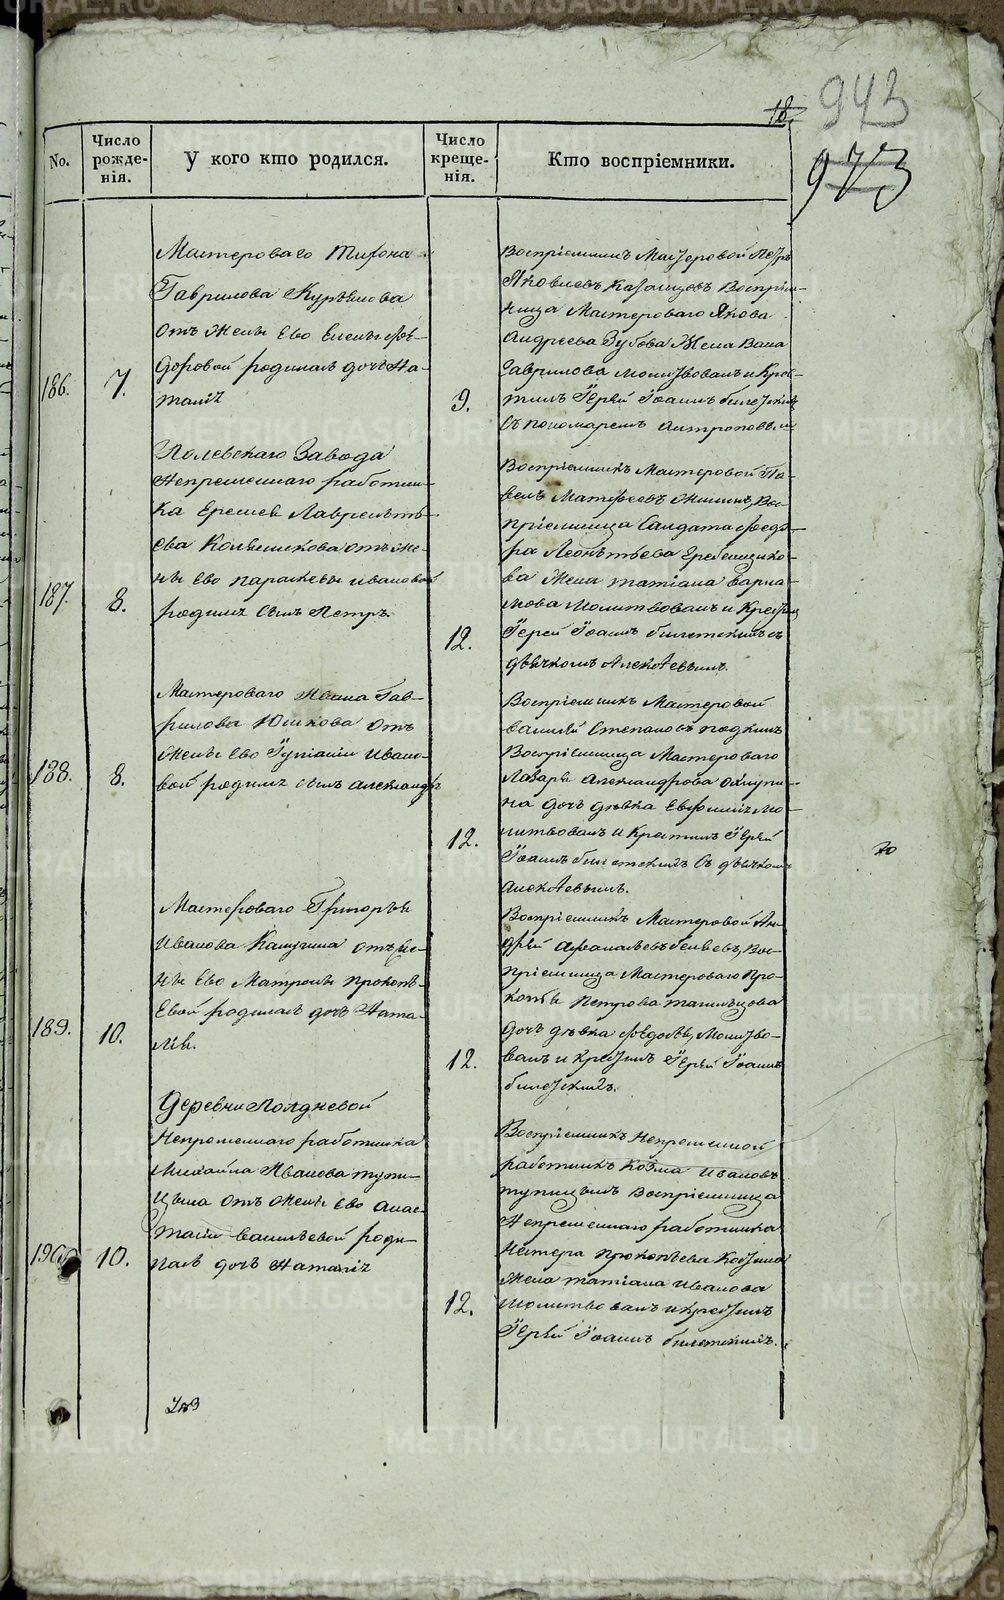 18.
943
973
No.
Число рожде- нія.
У кого кто родился.
Число креще- нія.
Кто воспріемники.
186.
7.
Мастероваго Тифона
Гаврилова
отъ жены Ево Елены Фе-
доровой родилась дочь На-
таліа
9.
Воспріемникъ Мастеровой Петръ
Яковлевъ Казанцовъ Воспріем-
ница Мастероваго Якова
Андреева Зубова Жена
Гаврилова молитвовалъ и Крес-
тилъ Іерей Іоаннъ билетскій
съ пономаремъ Антроповым
187.
8.
Полевскаго Завода
Непременнаго работни-
ка Еремея Лавренть-
ева отъ же-
ны Ево Парасковьи Ивановой
родился сынъ Петръ.
12.
Воспріемникъ Мастеровой Па-
велъ Матфеевъ Вос-
пріемница Салдата Федо-
ра Леонтьева Гребенщико-
ва Жена татіана варла-
мова молитвовалъ и Крестил
Іерей Іоаннъ билетскимъ съ
дьячкомъ Алексѣевымъ.
188.
8.
Мастероваго Ивана Гав-
рилова Юшкова отъ
Жены Ево Іуліаніи Ивано-
вой родился сынъ александръ
12.
Воспріемникъ Мастеровой
василей Степановъ
Воспріемница Мастероваго
Лазаря Александрова
на дочь дѣвка Евфиміа мо-
литвовалъ и Крестилъ Іерей
Іоаннъ билетскій съ дьячкомъ
алексѣевымъ.
189.
10.
Мастероваго Григорья
Иванова отъ же-
ны Ево Матроны прокопь-
Евой родилась дочь Ната-
лія.
12.
Воспріемникъ Мастеровой Ан-
дрей Афанасьевъ Вос-
пріемница Мастероваго Про-
копья Петрова
дочь дѣвка Федосья, Молитво-
валъ и Крестилъ Іерей Іоаннъ
билетскій.
190
10.
Деревни Полдневой
Непременнаго работника
Михайла Иванова тупи-
цына отъ жены Ево Анас-
тасіи васильевой роди-
лась дочь Наталіа
12.
Воспріемникъ Непременной
работникъ Козма Ивановъ
тупицынъ Воспріемница
Непременнаго работника
Нестера Прокопьева
Жена татіана Иванова
молитвовалъ и крестилъ
Іерей Іоаннъ билетскій.
METRIKI.GASO-URAL.RU